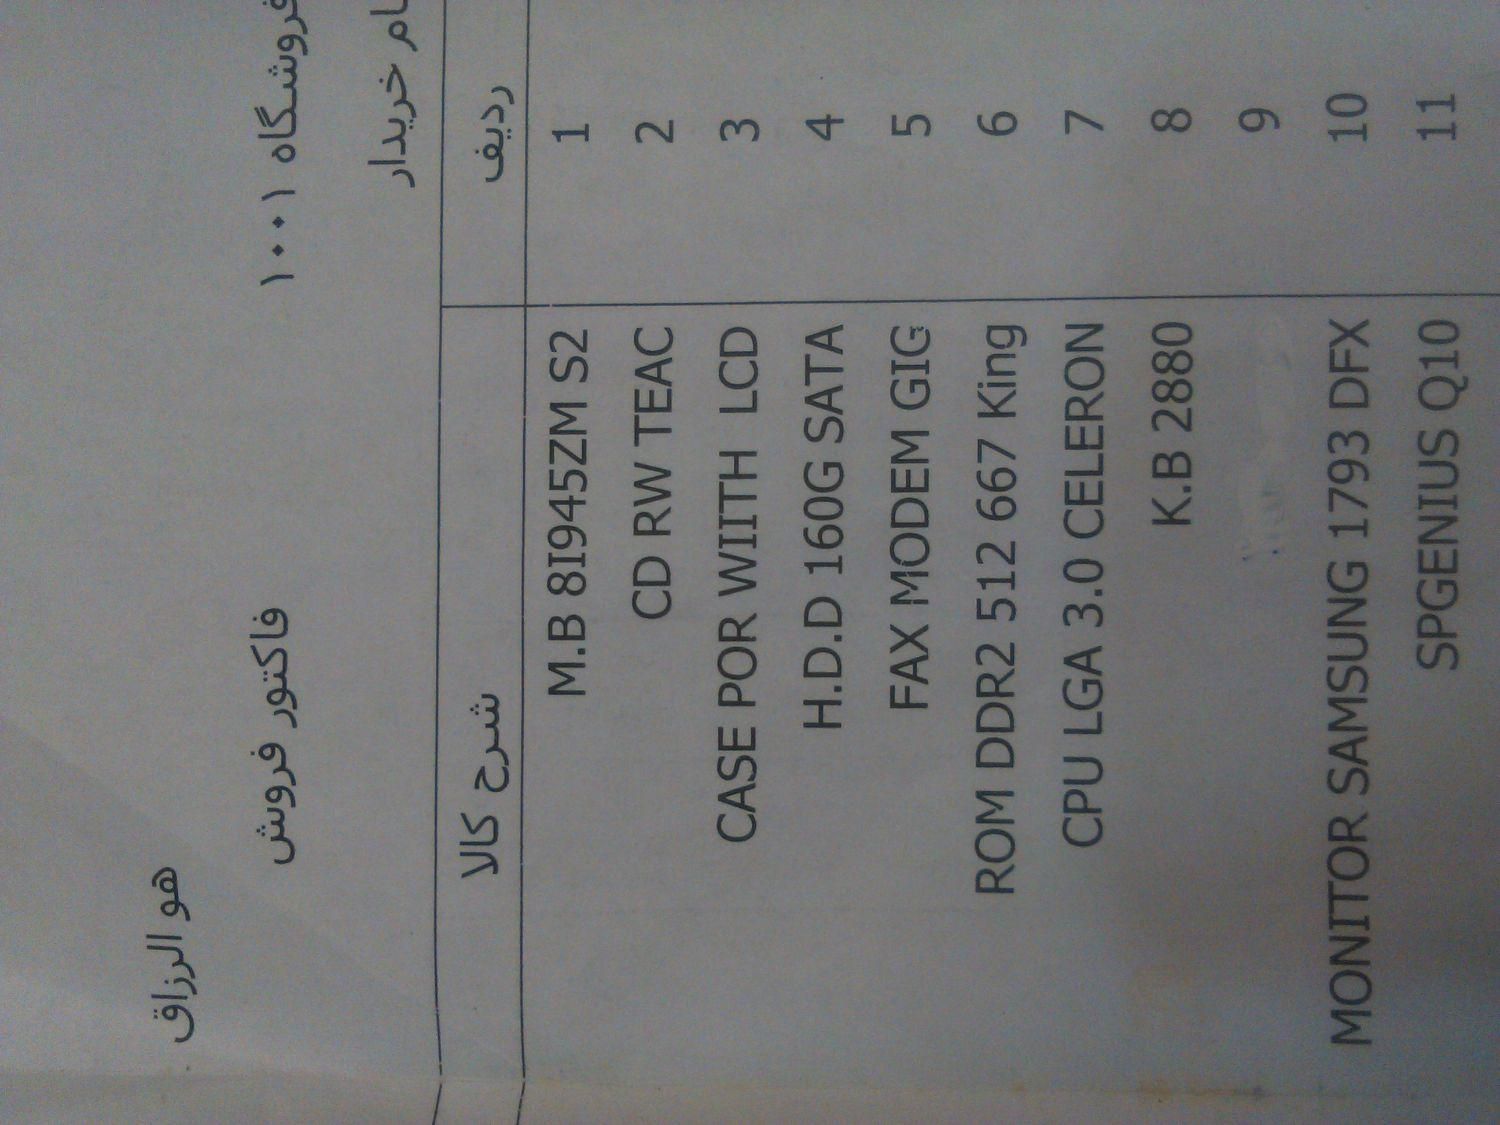 هو الرزاق
فاکتور فروش
فروشگاه ۱۰۰۱
نام خریدار
ردیف شرح کالا
1 M.B 8I945ZM S2
2 CD RW TEAC
3 CASE POR WIITH LCD
4 H.D.D 160G SATA
5 FAX MODEM GIG
6 ROM DDR2 512 667 King
7 CPU LGA 3.0 CELERON
8 K.B 2880
9
10 MONITOR SAMSUNG 1793 DFX
11 SPGENIUS Q10